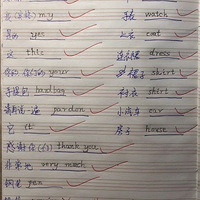 我(的) my
是的 yes
这 this
你的,你们的 your
手提包 handbag
请再说一遍 pardon
它 it
感谢你(们) thank you
非常地 very much
钢笔 pen
手表 watch
上衣 coat
连衣裙 dress
裙子 skirt
衬衣 shirt
小汽车 car
房子 house